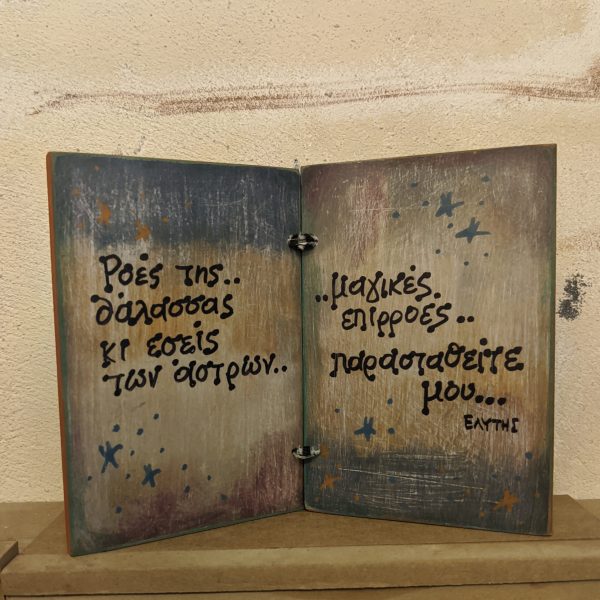 Ροές της..
θάλασσας
κι εσείς
των άστρων..
..μαγικές
επιρροές..
παρασταθείτε
μου...
ΕΛΥΤΗΣ